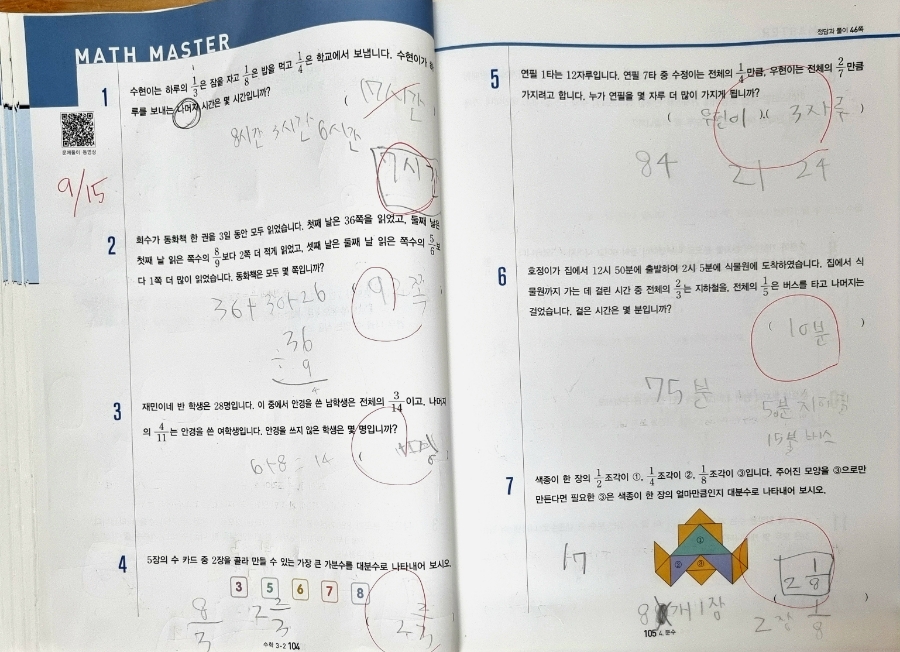 MATH MASTER
1
수현이는 하루의 1/3은 잠을 자고 1/8은 밥을 먹고 1/4은 학교에서 보냅니다. 수현이가 하
루를 보내는 나머지 시간은 몇 시간입니까?
(17시간)
8시간 3시간 6시간
7시간
문제풀이 동영상
9/15
2
희수가 동화책 한 권을 3일 동안 모두 읽었습니다. 첫째 날은 36쪽을 읽었고, 둘째 날은
첫째 날 읽은 쪽수의 8/9보다 2쪽 더 적게 읽었고, 셋째 날은 둘째 날 읽은 쪽수의 5/6보
다 1쪽 더 많이 읽었습니다. 동화책은 모두 몇 쪽입니까?
36+30+26
( 92쪽
36
÷ 9
4
3
재민이네 반 학생은 28명입니다. 이 중에서 안경을 쓴 남학생은 전체의 3/14이고, 나머지
의 4/11는 안경을 쓴 여학생입니다. 안경을 쓰지 않은 학생은 몇 명입니까?
6+8=14
4
5장의 수 카드 중 2장을 골라 만들 수 있는 가장 큰 가분수를 대분수로 나타내어 보시오.
3 5 6 7 8
8/3 2 2/3
2 2/3
수학 3-2 104
정답과 풀이 46쪽
5
연필 1타는 12자루입니다. 연필 7타 중 수정이는 전체의 1/4만큼, 우현이는 전체의 2/7만큼
가지려고 합니다. 누가 연필을 몇 자루 더 많이 가지게 됩니까?
( 우현이 3자루 )
84 21 24
6
호정이가 집에서 12시 50분에 출발하여 2시 5분에 식물원에 도착하였습니다. 집에서 식
물원까지 가는 데 걸린 시간 중 전체의 2/3는 지하철을, 전체의 1/5은 버스를 타고 나머지는
걸었습니다. 걸은 시간은 몇 분입니까?
( 10분 )
75분
50분 지하철
15분 버스
7
색종이 한 장의 1/2조각이 ①, 1/4조각이 ②, 1/8조각이 ③입니다. 주어진 모양을 ③으로만
만든다면 필요한 ③은 색종이 한 장의 얼마만큼인지 대분수로 나타내어 보시오.
①
② ③
17
2 1/8
8개 1장
2장 1/8
105 4. 분수